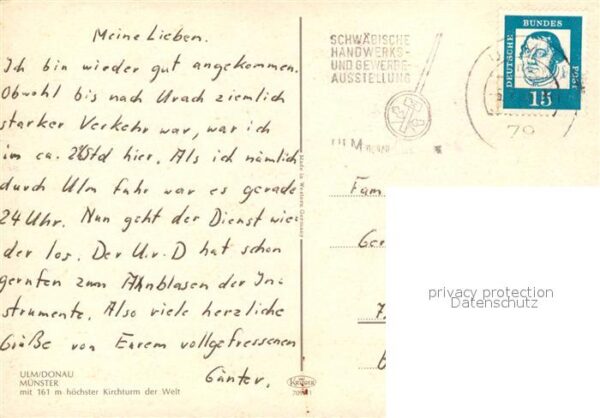 Meine Lieben.
Ich bin wieder gut angekommen.
Obwohl bis nach Urach ziemlich
starker Verkehr war, war ich
im ca. 2 Std hier. Als ich nämlich
durch Ulm fuhr war es gerade
24 Uhr. Nun geht der Dienst wie-
der los. Der U.v.D hat schon
gerufen zum Ahnblasen der In-
strumente. Also viele herzliche
Grüße von Eurem vollgefressenen
Günter.
ULM/DONAU
MÜNSTER
mit 161 m höchster Kirchturm der Welt
Made in Western Germany
Krüger
SCHWÄBISCHE
HANDWERKS-
UND GEWERBE-
AUSSTELLUNG
ULM
79
DEUTSCHE
BUNDES
POST
15
Fam
Ger
7
privacy protection
Datenschutz